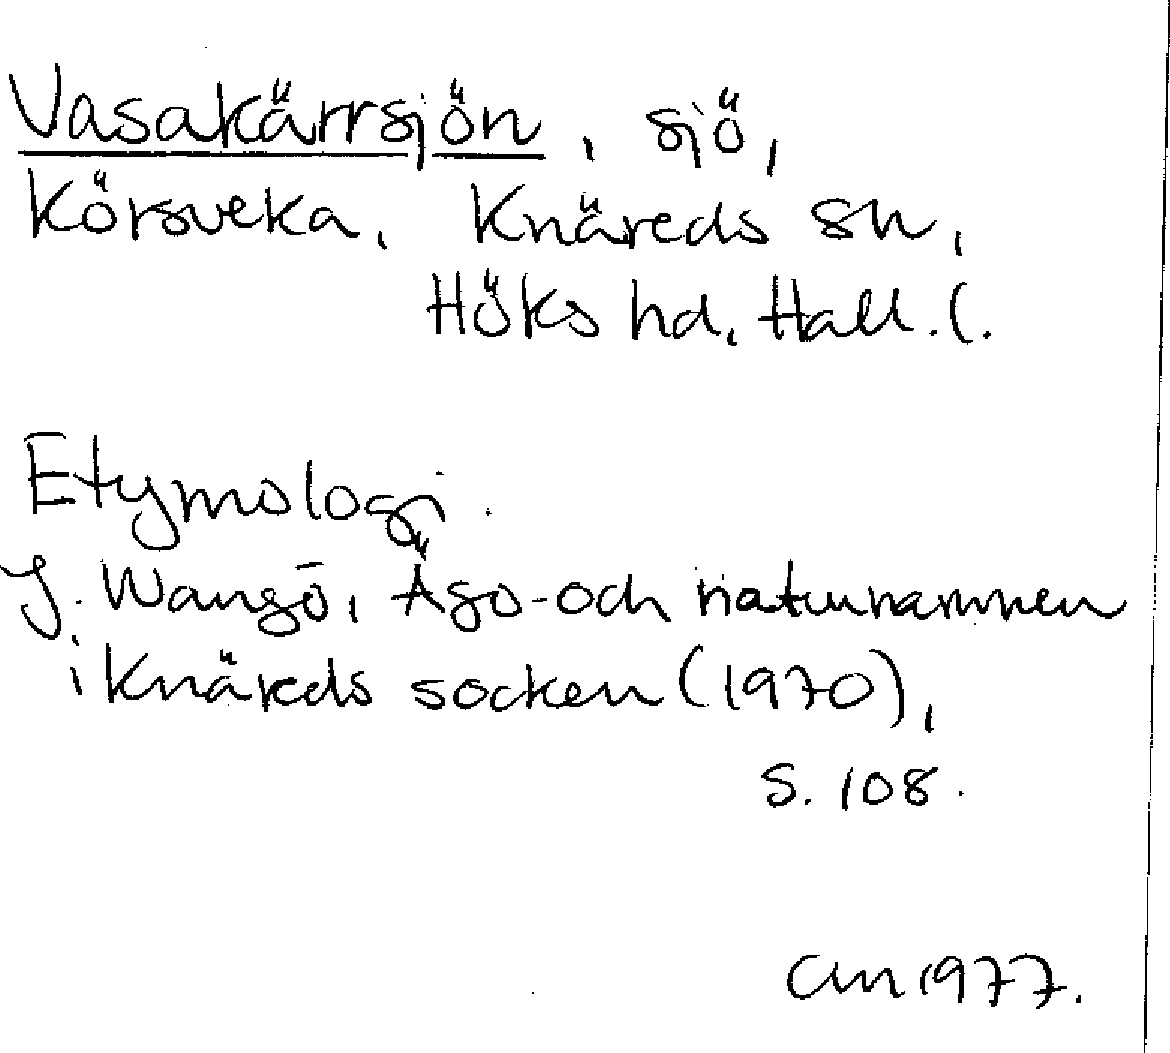 Vasakärrsjön, sjö,
Körsveka, Knäreds sn,
Höks hd, Hall. l.
Etymologi.
J. Wangö, Ägo- och naturnamnen
i Knäreds socken (1970),
s. 108.
CM 1977.